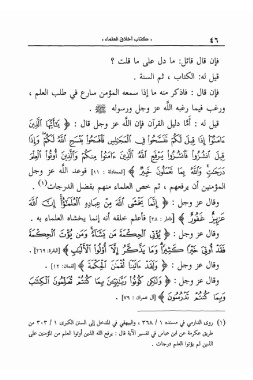 « كتاب أخلاق العلماء »
٤٦
فإن قال قائل: ما دل على ما قلت ؟
قيل له: الكتاب ، ثم السنة .
فإن قال : فاذكر منه ما إذا سمعه المؤمن سارع في طلب العلم ،
ورغب فيما رغبه الله عز وجل ورسوله ﷺ .
قيل له : أمَّا دليل القرآن فإن الله عز وجل قال : ﴿ يَٰٓأَيُّهَا ٱلَّذِينَ
ءَامَنُوٓا۟ إِذَا قِيلَ لَكُمْ تَفَسَّحُوا۟ فِى ٱلْمَجَٰلِسِ فَٱفْسَحُوا۟ يَفْسَحِ ٱللَّهُ لَكُمْ وَإِذَا
قِيلَ ٱنشُزُوا۟ فَٱنشُزُوا۟ يَرْفَعِ ٱللَّهُ ٱلَّذِينَ ءَامَنُوا۟ مِنكُمْ وَٱلَّذِينَ أُوتُوا۟ ٱلْعِلْمَ
دَرَجَٰتٍ وَٱللَّهُ بِمَا تَعْمَلُونَ خَبِيرٌ ﴾ [المجادلة : ١١] فوعد الله عز وجل
المؤمنين أن يرفعهم ، ثم خص العلماء منهم بفضل الدرجات(١) .
وقال عز وجل : ﴿ إِنَّمَا يَخْشَى ٱللَّهَ مِنْ عِبَادِهِ ٱلْعُلَمَٰٓؤُا۟ إِنَّ ٱللَّهَ
عَزِيزٌ غَفُورٌ ﴾ [فاطر : ٢٨] فأعلم خلقه أنه إنما يخشاه العلماء به .
وقال عز وجل : ﴿ يُؤْتِى ٱلْحِكْمَةَ مَن يَشَآءُ وَمَن يُؤْتَ ٱلْحِكْمَةَ
فَقَدْ أُوتِىَ خَيْرًا كَثِيرًا وَمَا يَذَّكَّرُ إِلَّآ أُو۟لُوا۟ ٱلْأَلْبَٰبِ ﴾ [البقرة: ٢٦٩] .
وقال عز وجل : ﴿ وَلَقَدْ ءَاتَيْنَا لُقْمَٰنَ ٱلْحِكْمَةَ ﴾ [لقمان : ١٢] .
وقال عز وجل : ﴿ وَلَٰكِن كُونُوا۟ رَبَّٰنِيِّـۧنَ بِمَا كُنتُمْ تُعَلِّمُونَ ٱلْكِتَٰبَ
وَبِمَا كُنتُمْ تَدْرُسُونَ ﴾ [آل عمران : ٧٩] .
(١) روى الدارمي في مسنده ١ / ٣٦٨ ، والبيهقي في المدخل إلى السنن الكبرى ١ / ٣٠٣ من
طريق عكرمة عن ابن عباس في تفسير الآية قال : يرفع الله الذين أوتوا العلم من المؤمنين على
الذين لم يؤتوا العلم درجات .